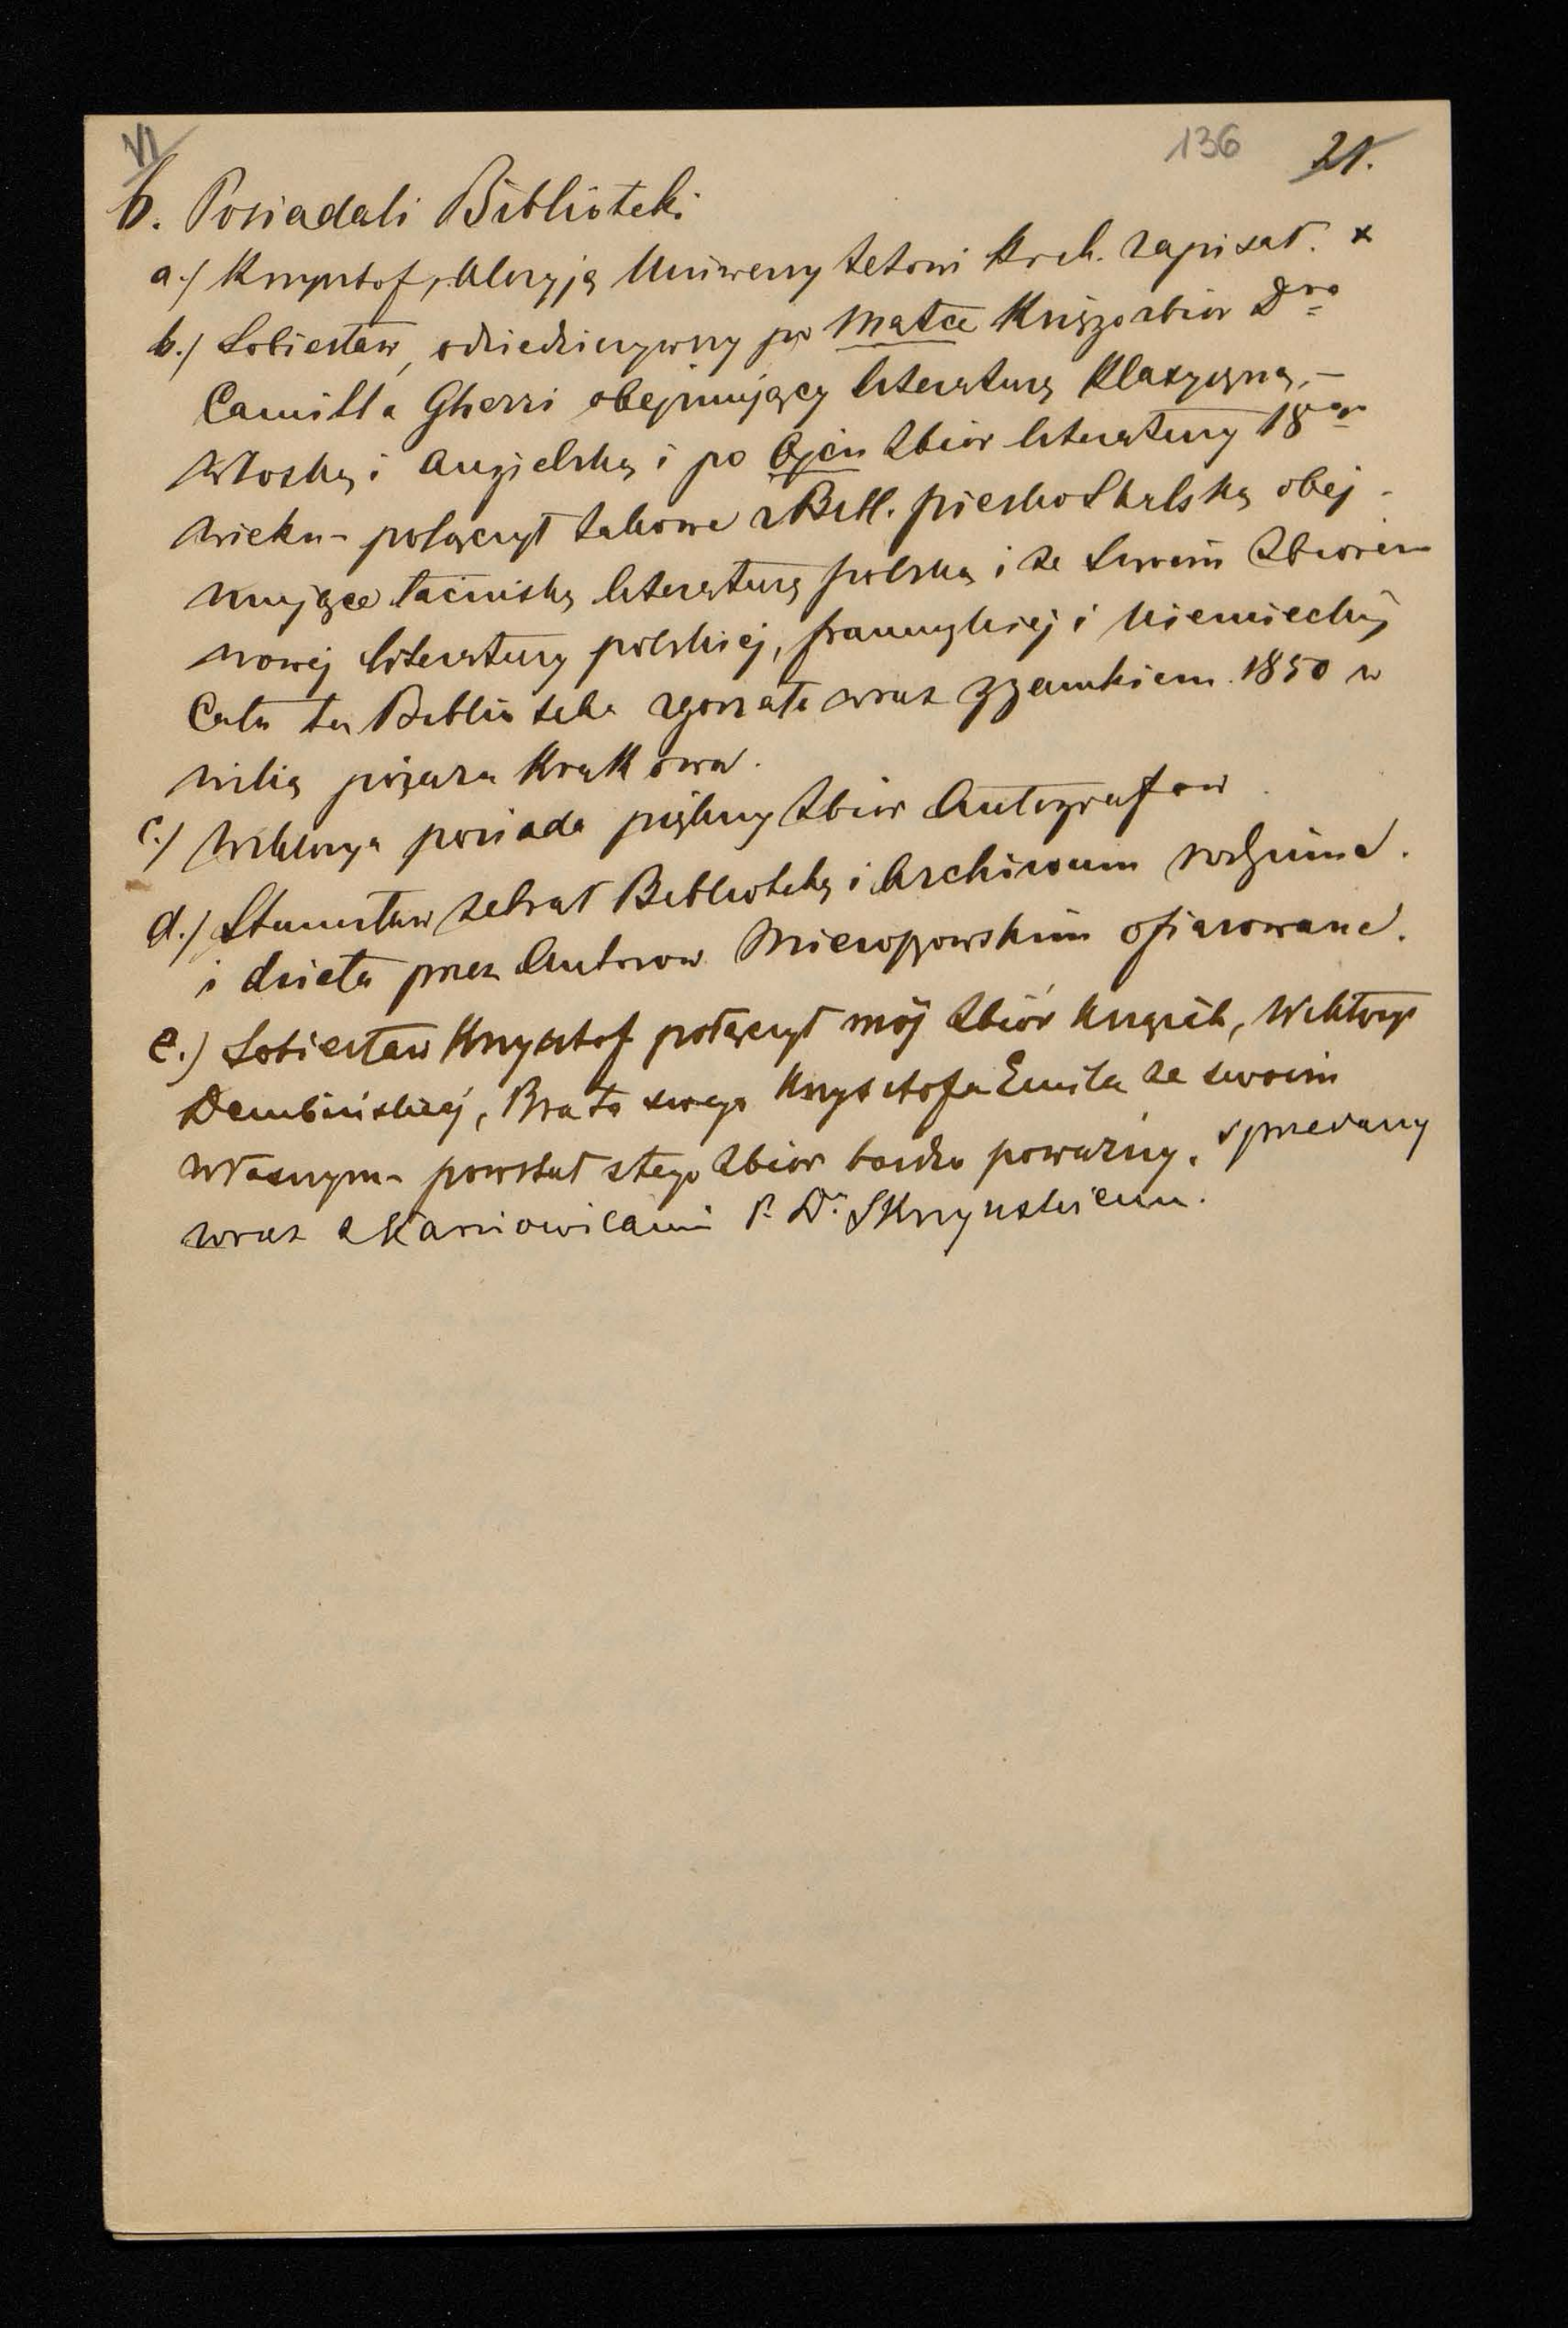 VI 136 21.
6. Posiadali Biblioteki
a./ Krzysztof, którą Uniwersytetowi Krak. zapisał. x
b./ Sobiesław, odziedziczywszy po Matce Księgozbiór Dra
Camilla Gherri obejmujący literaturę klasyczną, –
włoską i angielską i po Ojcu zbiór literatury 18go
wieku – połączył takowe z Bibl. pieskoskalską obej-
mujące łacińską literaturę polską i ze swoim zbiorem
nowej literatury polskiej, francuzkiej i niemieckiej
Cała ta Biblioteka zgorzała wraz z zamkiem 1850 w
wilią pożaru Krakowa.
c./ Wiktorya posiada piękny zbiór Autografow
d./ Stanisław zebrał Bibliotekę i Archiwum rodzinne.
i dzieła przez Autorow Mieroszowskim ofiarowane.
e.) Sobiesław Krzysztof połączył mój zbiór książek, Wiktoryi
Dembińskiej, Brata swego Krzysztofa Emila ze swoim
własnym – powstał z tego zbiór bardzo poważny, sprzedany
wraz z Karniowicami P. Dr. Skrzyńskiemu.